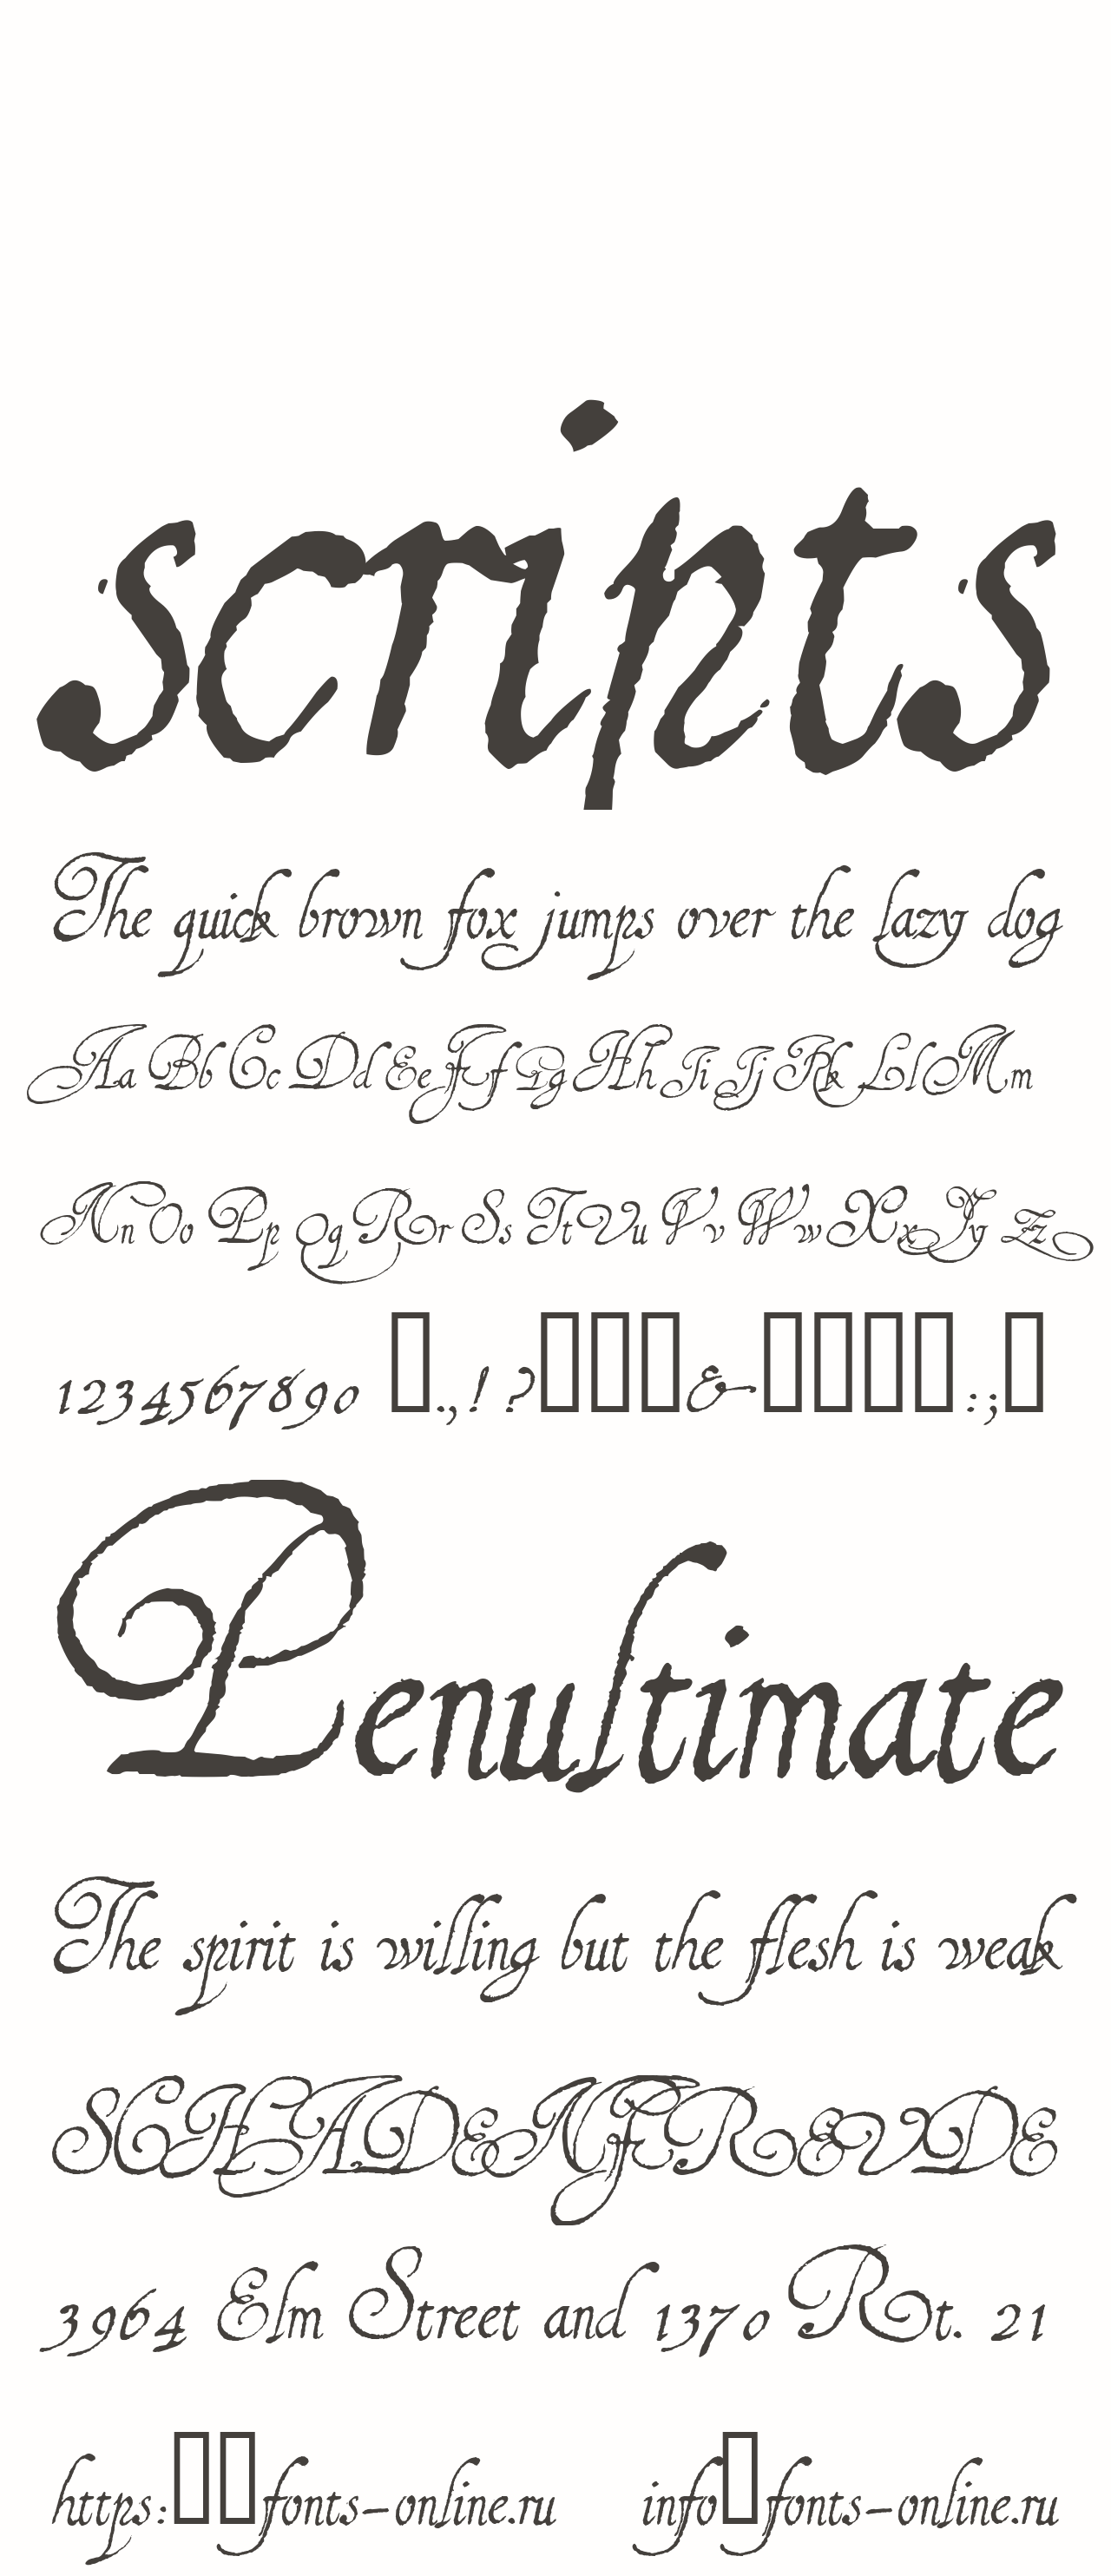 scripts
The quick brown fox jumps over the lazy dog
Aa Bb Cc Dd Ee Ff Gg Hh Ii Jj Kk Ll Mm
Nn Oo Pp Qq Rr Ss Tt Uu Vv Ww Xx Yy Zz
1234567890 ▯.,!?▯▯▯&▯▯▯▯:;▯
Penultimate
The spirit is willing but the flesh is weak
SCHADENFREUDE
3964 Elm Street and 1370 Rt. 21
https:▯▯fonts-online.ru info▯fonts-online.ru